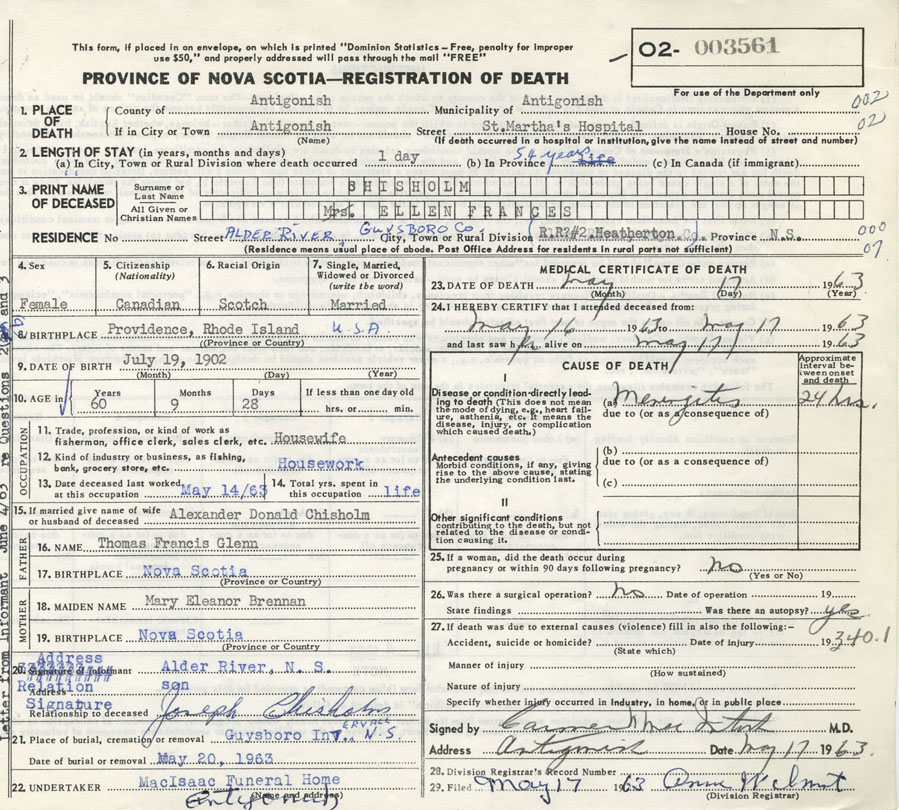 This form, if placed in an envelope, on which is printed "Dominion Statistics – Free, penalty for improper
use $50," and properly addressed will pass through the mail "FREE"
O2- 003561
PROVINCE OF NOVA SCOTIA—REGISTRATION OF DEATH
For use of the Department only
002
02
1. PLACE OF DEATH
County of Antigonish Municipality of Antigonish
If in City or Town Antigonish Street St.Martha's Hospital House No.
(Name) (If death occurred in a hospital or institution, give the name instead of street and number)
2. LENGTH OF STAY (in years, months and days)
(a) In City, Town or Rural Division where death occurred 1 day (b) In Province 54 years life (c) In Canada (if immigrant)
3. PRINT NAME OF DECEASED
Surname or Last Name CHISHOLM
All Given or Christian Names Mrs. ELLEN FRANCES
RESIDENCE No Street ALDER RIVER, GUYSBORO Co. City, Town or Rural Division R.R?#2 Heatherton. Co. Province N.S.
000
07
(Residence means usual place of abode. Post Office Address for residents in rural parts not sufficient)
4. Sex Female
5. Citizenship (Nationality) Canadian
6. Racial Origin Scotch
7. Single, Married, Widowed or Divorced (write the word) Married
8. BIRTHPLACE Providence, Rhode Island U.S.A.
(Province or Country)
9. DATE OF BIRTH July 19, 1902
(Month) (Day) (Year)
10. AGE in Years 60 Months 9 Days 28 If less than one full day hrs. or min.
OCCUPATION
11. Trade, profession, or kind of work as fisherman, office clerk, sales clerk, etc. Housewife
12. Kind of industry or business, as fishing, bank, grocery store, etc. Housework
13. Date deceased last worked at this occupation May 14/63
14. Total yrs. spent in this occupation life
15. If married give name of wife or husband of deceased Alexander Donald Chisholm
FATHER
16. NAME Thomas Francis Glenn
17. BIRTHPLACE Nova Scotia
(Province or Country)
MOTHER
18. MAIDEN NAME Mary Eleanor Brennan
19. BIRTHPLACE Nova Scotia
(Province or Country
Address
20. Signature of informant Alder River, N. S.
Address
Relation son
Signature
Relationship to deceased Joseph Chisholm
21. Place of burial, cremation or removal Guysboro Int. N.S.
Date of burial or removal May 20, 1963
22. UNDERTAKER MacIsaac Funeral Home
(Name and address)
Antigonish
Letter from Informant June 4/63 re Questions 20 and 3
MEDICAL CERTIFICATE OF DEATH
23. DATE OF DEATH May 17 1963
(Month) (Day) (Year)
24. I HEREBY CERTIFY that I attended deceased from:
May 16 1963 to May 17 1963
and last saw h alive on May 17 1963
CAUSE OF DEATH
Approximate interval between onset and death
I
Disease or condition directly leading to death (This does not mean the mode of dying, e.g., heart failure, asthenia, etc. It means the disease, injury, or complication which caused death.)
(a) Meningitis 24 hrs.
due to (or as a consequence of)
Antecedent causes
Morbid conditions, if any, giving rise to the above cause, stating the underlying condition last.
(b)
due to (or as a consequence of)
(c)
II
Other significant conditions contributing to the death, but not related to the disease or condition causing it.
25. If a woman, did the death occur during pregnancy or within 90 days following pregnancy? No
(Yes or No)
26. Was there a surgical operation? No Date of operation 19
State findings Was there an autopsy? yes
27. If death was due to external causes (violence) fill in also the following:–
340.1
Accident, suicide or homicide? Date of injury 19
(State which)
Manner of injury
(How sustained)
Nature of injury
Specify whether injury occurred in industry, in home, or in public place
Signed by MacIntosh M.D.
Address Antigonish Date May 17 1963.
28. Division Registrar's Record Number
29. Filed May 17 1963
(Division Registrar)